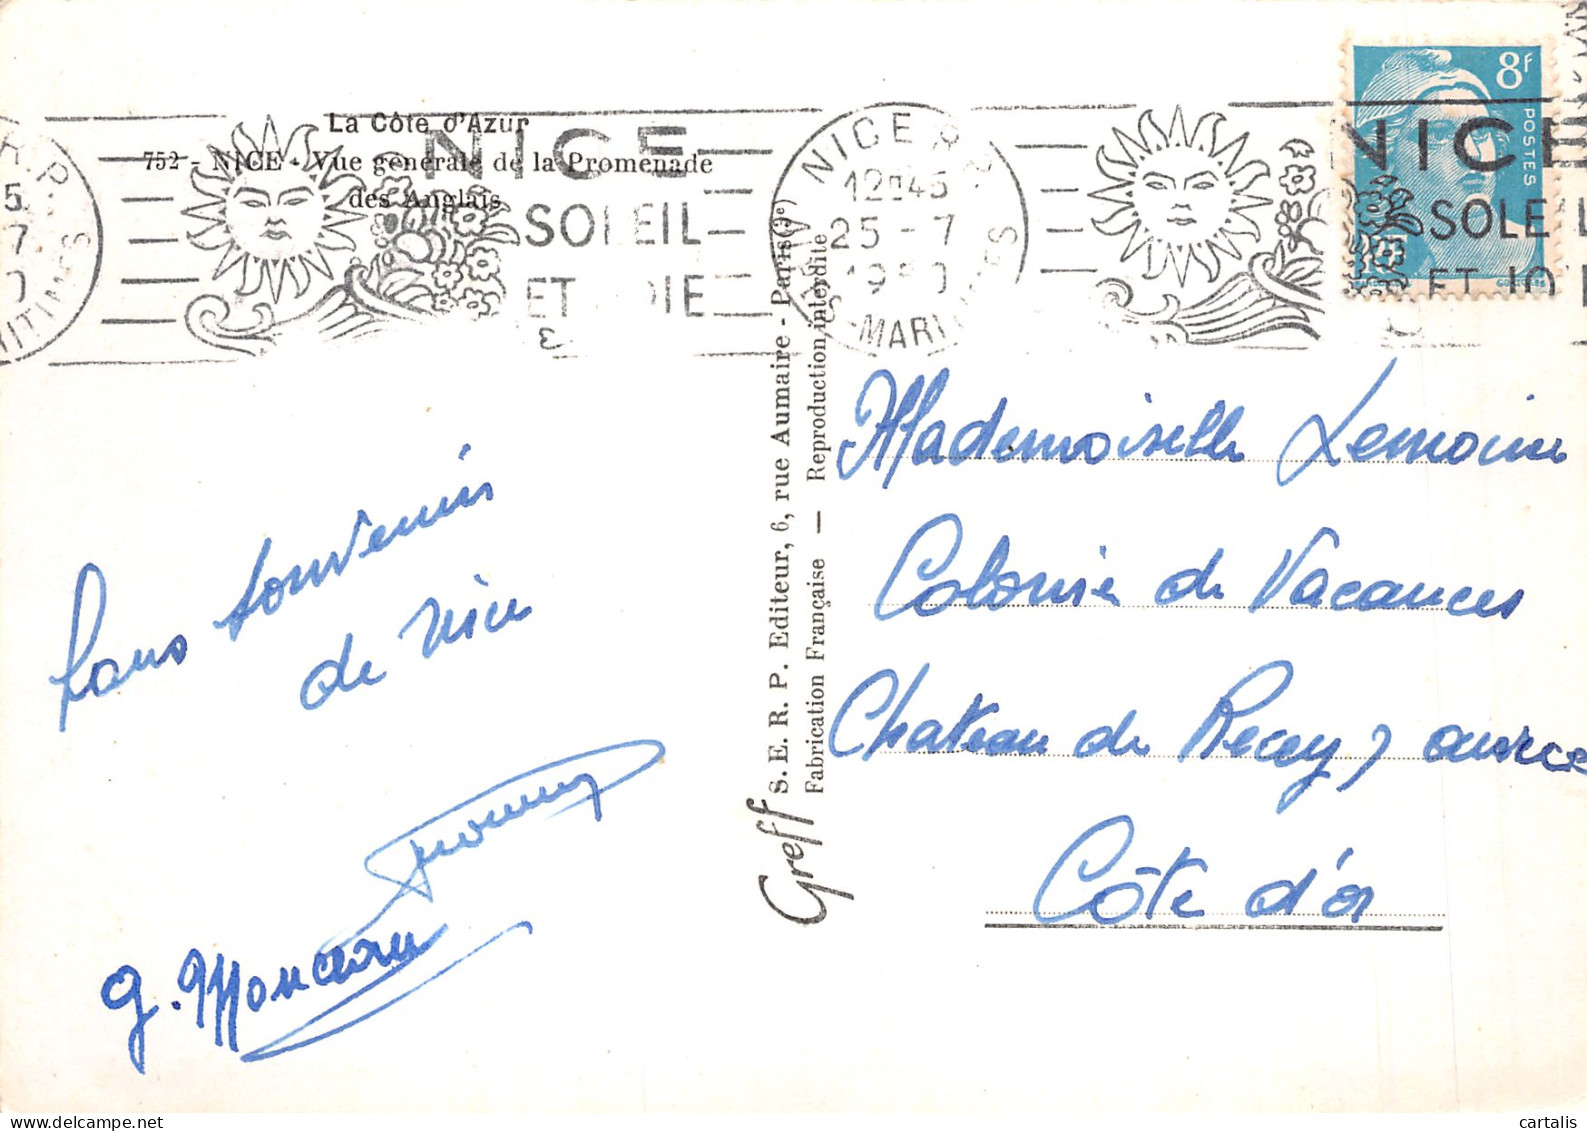 La Côte d'Azur
752 - NICE - Vue générale de la Promenade
des Anglais
NICE
SOLEIL
ET JOIE
NICE R.P.
12H45
25 - 7
1950
ALPES-MARITIMES
NICE
SOLEIL
ET JOIE
8f
POSTES
S. E. R. P. Editeur, 6, rue Aumaire - Paris (3e)
Fabrication Française — Reproduction interdite
Greff
Bons souvenirs
de Nice
Mademoiselle Lemoine
Colonie de Vacances
Chateau de Recey s ource
Côte d'or
cartalis